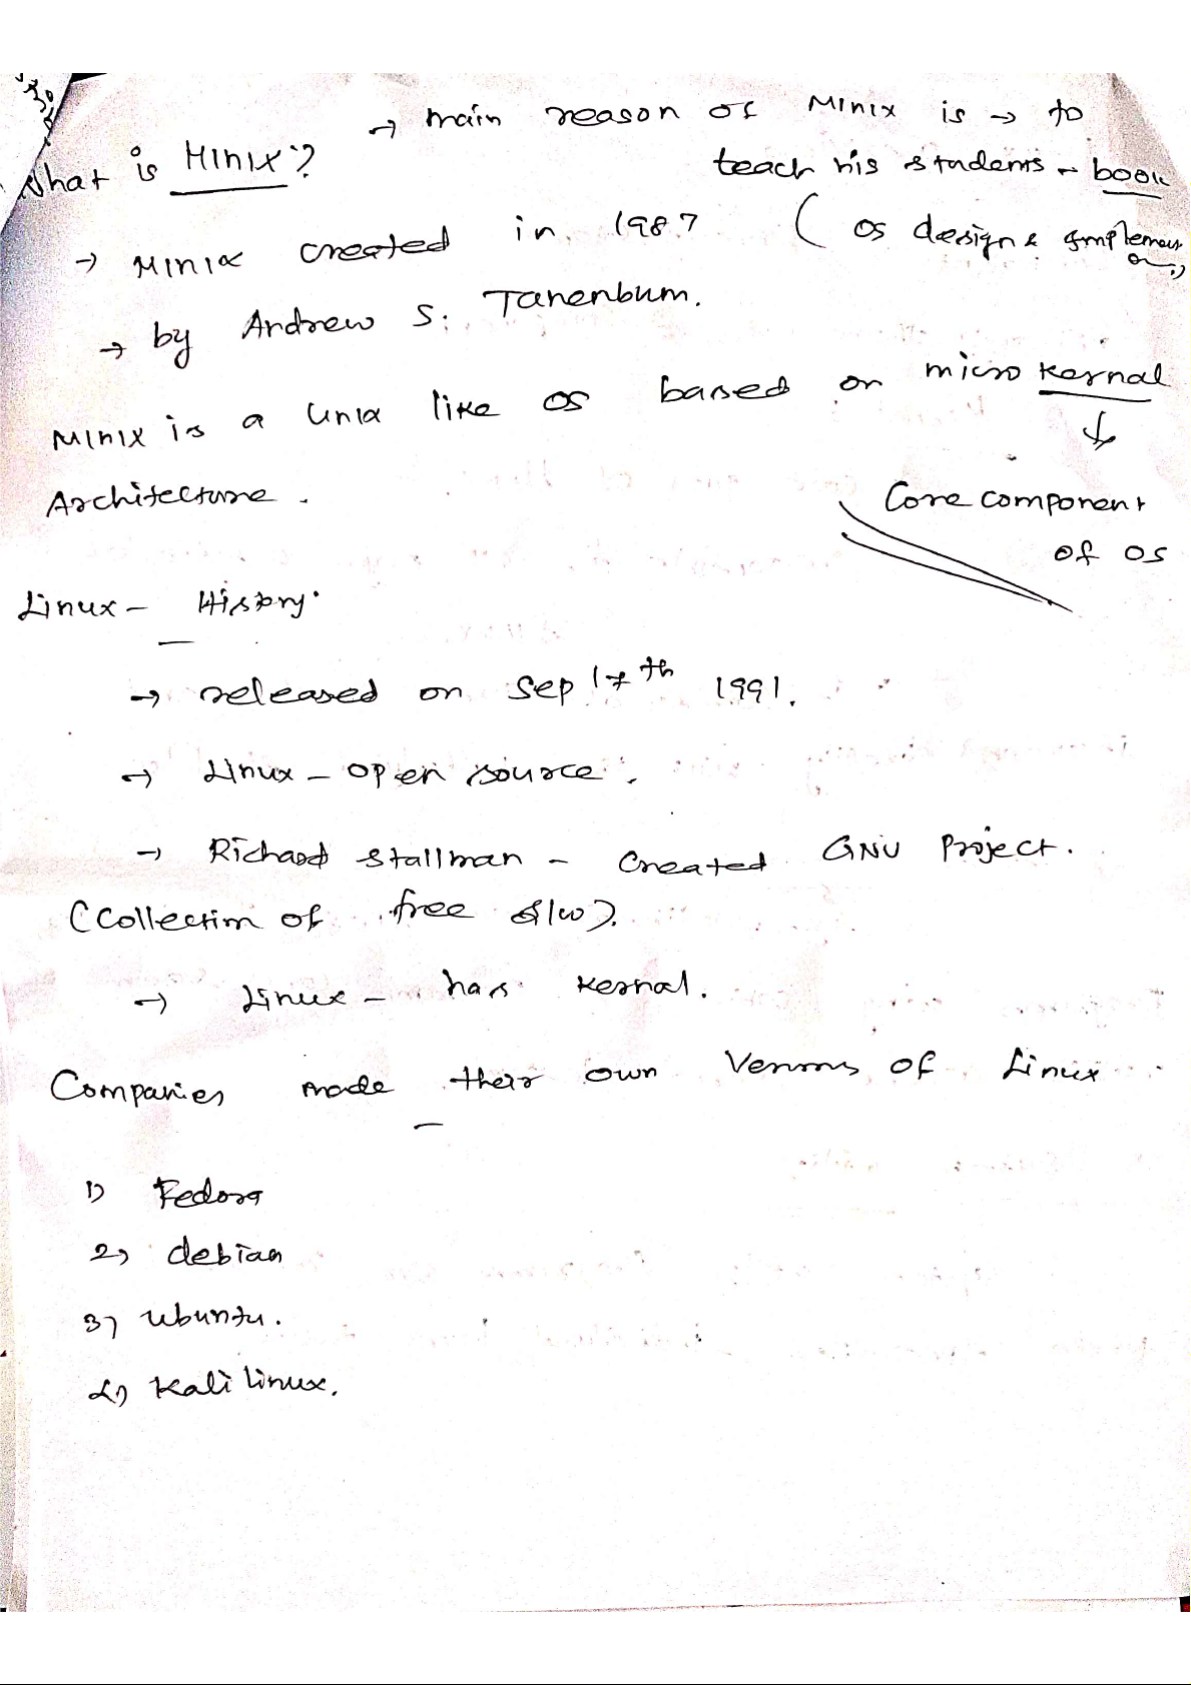 What is MINIX?
→ main reason of MINIX is → to
teach his students - book
( OS design &
→ MINIX created in 1987
→ by Andrew S. Tanenbum.
MINIX is a Unix like OS based on micro kernal
Architecture.
↓
Core component
of OS
Linux - History.
→ released on Sep 17th 1991.
→ Linux - open source.
→ Richard Stallman - created GNU Project.
(Collection of free s/w).
→ Linux - has kernal.
Companies made their own Versions of Linux
1) Fedora
2) debian
3) Ubuntu.
4) Kali Linux.